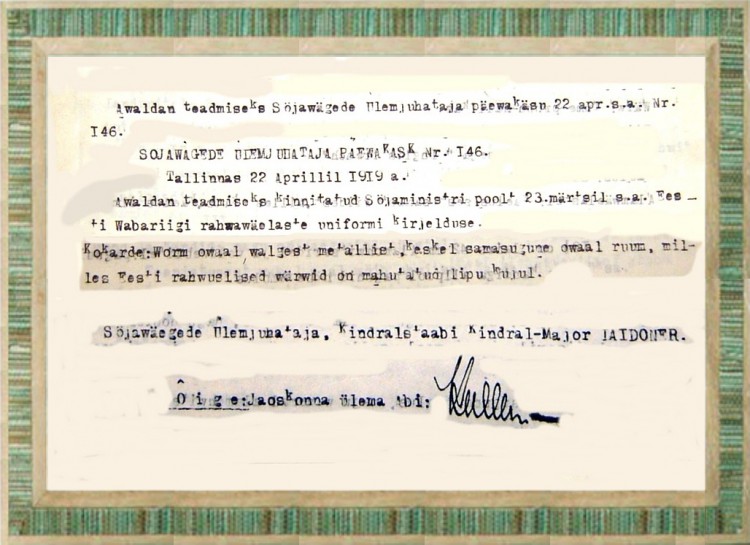 Awaldan teadmiseks Sõjawägede Ülemjuhataja päewakäsu 22 apr.s.a. Nr.
I46.
SÕJAWÄGEDE ÜLEMJUHATAJA PÄEWAKÄSK Nr. I46.
Tallinnas 22 Aprillil I9I9 a.
Awaldan teadmiseks kinnitatud Sõjaministri poolt 23.märtsil s.a. Ees-
ti Wabariigi rahwawäelaste uniformi kirjelduse.
Kokarde: Worm owaal walgest metallist, keskel samasugune owaal ruum, mil-
les Eesti rahwuslised wärwid on mahutatud lipu kujul.
Sõjawäegede Ülemjuhataja, Kindralstaabi Kindral-Major LAIDONER.
Õige: Jaoskonna ülema Abi: